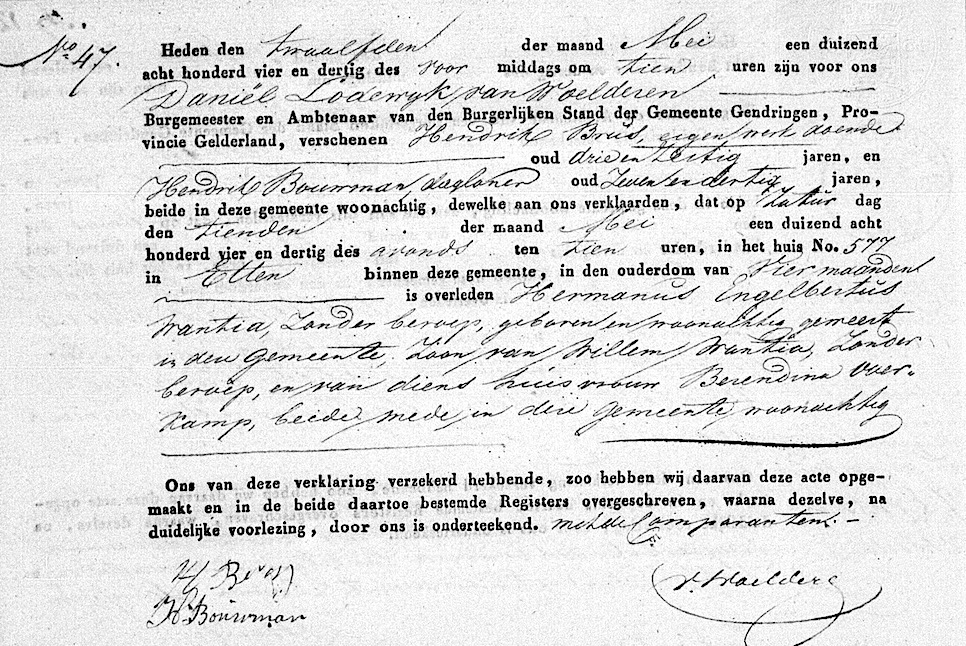 No 47.
Heden den twaalfden der maand Mei een duizend
acht honderd vier en dertig des voor middags om tien uren zijn voor ons
Daniël Lodewyk van Woelderen
Burgemeester en Ambtenaar van den Burgerlijken Stand der Gemeente Gendringen, Pro-
vincie Gelderland, verschenen Hendrik Brus, eigen werk doende
oud drie en dertig jaren, en
Hendrik Bouwman, dagloner oud Zeven en dertig jaren,
beide in deze gemeente woonachtig, dewelke aan ons verklaarden, dat op Zatur dag
den tienden der maand Mei een duizend acht
honderd vier en dertig des avonds ten tien uren, in het huis No. 577
in Etten binnen deze gemeente, in den ouderdom van Vier maanden
is overleden Hermanus Engelbertus
Wantia, Zonder beroep, geboren en woonachtig geweest
in deze Gemeente, Zoon van Willem Wantia, Zonder
beroep, en van diens huisvrouw Berendina Over-
kamp, beide mede in deze Gemeente woonachtig
Ons van deze verklaring verzekerd hebbende, zoo hebben wij daarvan deze acte opge-
maakt en in de beide daartoe bestemde Registers overgeschreven, waarna dezelve, na
duidelijke voorlezing, door ons is onderteekend. met de Comparanten.
H Brus
H Bouwman
v. Woelderen